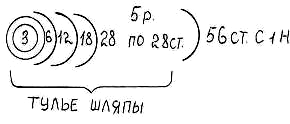 5 р.
3 6 12 18 28 по 28 ст. 56 ст. с 1 н
тулье шляпы